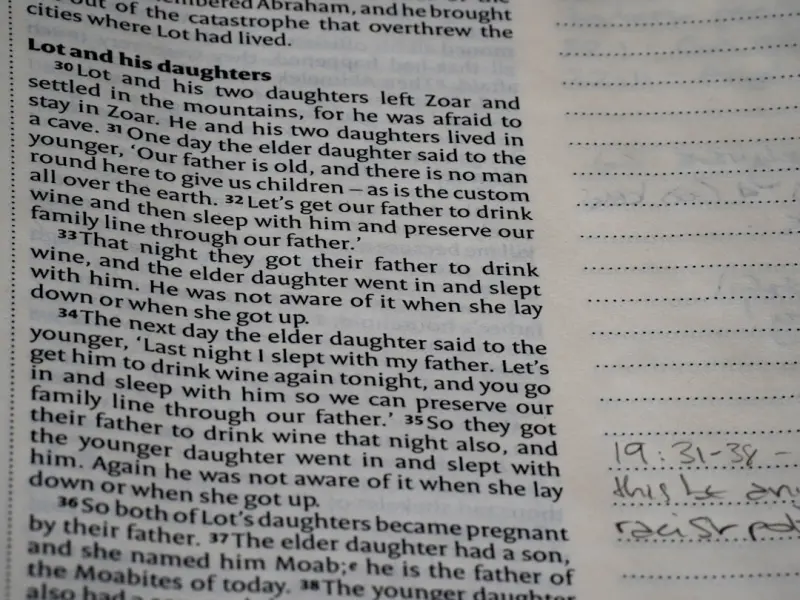 out of the catastrophe that overthrew the
cities where Lot had lived.
Lot and his daughters
30 Lot and his two daughters left Zoar and
settled in the mountains, for he was afraid to
stay in Zoar. He and his two daughters lived in
a cave. 31 One day the elder daughter said to the
younger, ‘Our father is old, and there is no man
round here to give us children – as is the custom
all over the earth. 32 Let’s get our father to drink
wine and then sleep with him and preserve our
family line through our father.’
33 That night they got their father to drink
wine, and the elder daughter went in and slept
with him. He was not aware of it when she lay
down or when she got up.
34 The next day the elder daughter said to the
younger, ‘Last night I slept with my father. Let’s
get him to drink wine again tonight, and you go
in and sleep with him so we can preserve our
family line through our father.’ 35 So they got
their father to drink wine that night also, and
the younger daughter went in and slept with
him. Again he was not aware of it when she lay
down or when she got up.
36 So both of Lot’s daughters became pregnant
by their father. 37 The elder daughter had a son,
and she named him Moab; he is the father of
the Moabites of today. 38 The younger daughter
also had a
19:31-38 -
this be any
racist